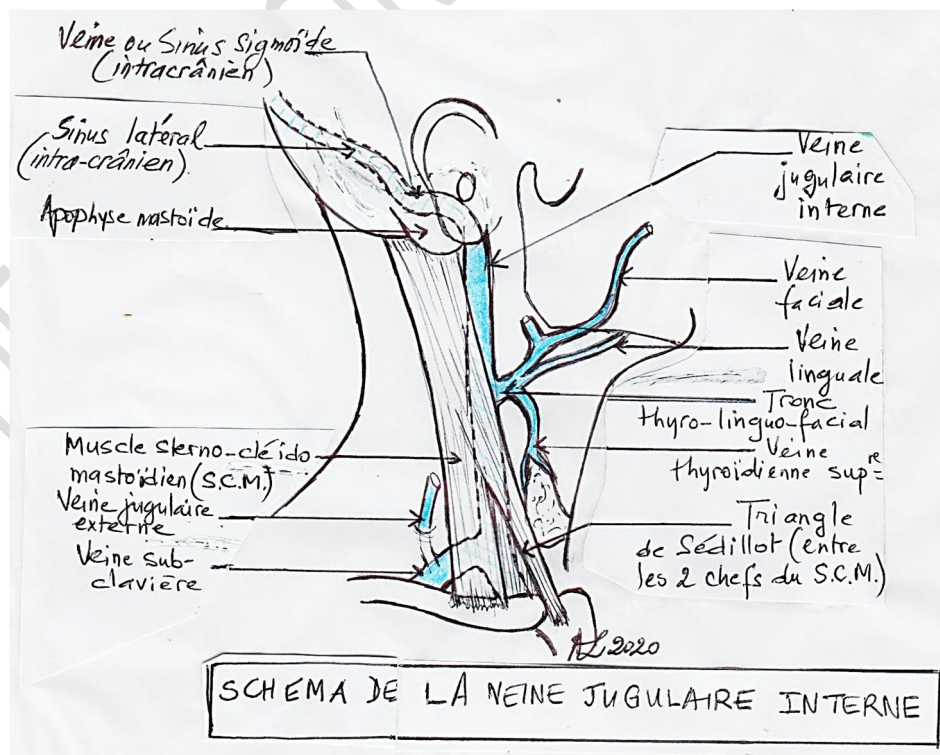 Veine ou Sinus Sigmoïde
(intracrânien)
Sinus latéral
(intra-crânien)
Apophyse mastoïde
Muscle sterno-cléido
mastoïdien (S.C.M.)
Veine jugulaire
externe
Veine sub-
clavière
Veine
jugulaire
interne
Veine
faciale
Veine
linguale
Tronc
thyro-linguo-facial
Veine
thyroïdienne sup re
Triangle
de Sédillot (entre
les 2 chefs du S.C.M.)
AL 2020
SCHEMA DE LA VEINE JUGULAIRE INTERNE